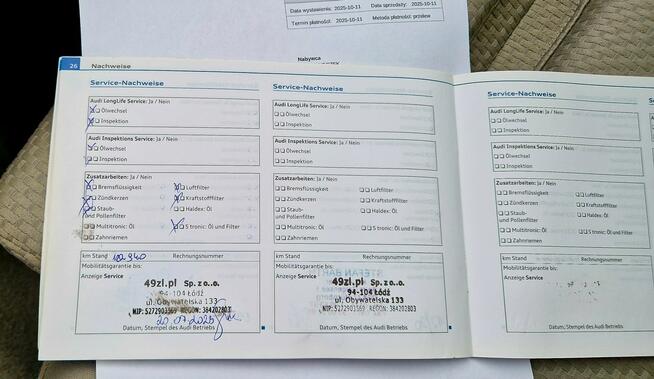 Data wystawienia: 2025-10-11 Data sprzedaży: 2025-10-11
Termin płatności: 2025-10-11 Metoda płatności: przelew
Nabywca
26 Nachweise
Service-Nachweise
Audi LongLife Service: Ja / Nein
Ölwechsel
Inspektion
Audi Inspektions Service: Ja / Nein
Ölwechsel
Inspektion
Zusatzarbeiten: Ja / Nein
Bremsflüssigkeit Luftfilter
Zündkerzen Kraftstofffilter
Staub- Haldex: Öl
und Pollenfilter
Multitronic: Öl S tronic: Öl und Filter
Zahnriemen
km Stand Rechnungsnummer
Mobilitätsgarantie bis:
Anzeige Service
49zl.pl Sp. z o.o.
94-104 Łódź
ul. Obywatelska 133
NIP: 5272903369 REGON: 384202803
Datum, Stempel des Audi Betriebs
Service-Nachweise
Audi LongLife Service: Ja / Nein
Ölwechsel
Inspektion
Audi Inspektions Service: Ja / Nein
Ölwechsel
Inspektion
Zusatzarbeiten: Ja / Nein
Bremsflüssigkeit Luftfilter
Zündkerzen Kraftstofffilter
Staub- Haldex: Öl
und Pollenfilter
Multitronic: Öl S tronic: Öl und Filter
Zahnriemen
km Stand Rechnungsnummer
Mobilitätsgarantie bis:
Anzeige Service
49zl.pl Sp. z o.o.
94-104 Łódź
ul. Obywatelska 133
NIP: 5272903369 REGON: 384202803
Datum, Stempel des Audi Betriebs
Service-Nachweise
Audi LongLife Service: Ja / Nein
Ölwechsel
Inspektion
Audi Inspektions Service: Ja / Nein
Ölwechsel
Inspektion
Zusatzarbeiten: Ja / Nein
Bremsflüssigkeit Luftfilter
Zündkerzen Kraftstofffilter
Staub- Haldex: Öl
und Pollenfilter
Multitronic: Öl S tronic: Öl und Filter
Zahnriemen
km Stand Rechnungsnummer
Mobilitätsgarantie bis:
Anzeige Service
Datum, Stempel des Audi Betriebs